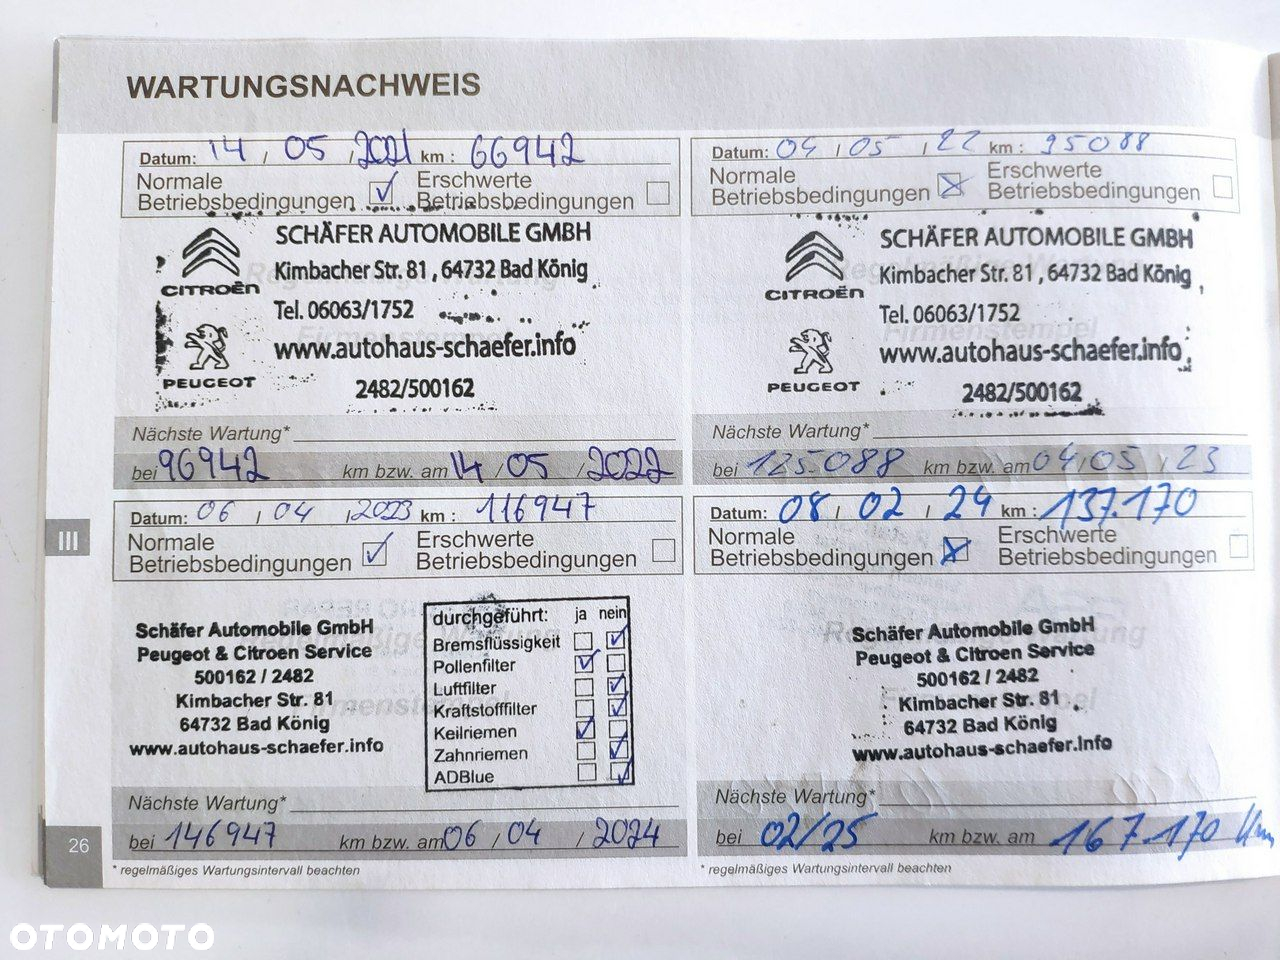 WARTUNGSNACHWEIS
Datum: 14 / 05 / 2021 km : 66942
Normale Betriebsbedingungen ☑ Erschwerte Betriebsbedingungen ☐
SCHÄFER AUTOMOBILE GMBH
Kimbacher Str. 81 , 64732 Bad König
CITROËN
Tel. 06063/1752
www.autohaus-schaefer.info
PEUGEOT
2482/500162
Nächste Wartung*
bei 96942 km bzw. am 14 / 05 / 2022
Datum: 04 / 05 / 22 km : 95088
Normale Betriebsbedingungen ☒ Erschwerte Betriebsbedingungen ☐
SCHÄFER AUTOMOBILE GMBH
Kimbacher Str. 81 , 64732 Bad König
CITROËN
Tel. 06063/1752
www.autohaus-schaefer.info
PEUGEOT
2482/500162
Nächste Wartung*
bei 125.088 km bzw. am 04 / 05 / 23
III
Datum: 06 / 04 / 2023 km : 116947
Normale Betriebsbedingungen ☑ Erschwerte Betriebsbedingungen ☐
Schäfer Automobile GmbH
Peugeot & Citroen Service
500162 / 2482
Kimbacher Str. 81
64732 Bad König
www.autohaus-schaefer.info
durchgeführt: ja nein
Bremsflüssigkeit ☐ ☑
Pollenfilter ☑ ☐
Luftfilter ☐ ☑
Kraftstofffilter ☐ ☑
Keilriemen ☑ ☐
Zahnriemen ☐ ☑
ADBlue ☐ ☑
Nächste Wartung*
bei 146947 km bzw. am 06 / 04 / 2024
* regelmäßiges Wartungsintervall beachten
Datum: 08 / 02 / 24 km : 137.170
Normale Betriebsbedingungen ☒ Erschwerte Betriebsbedingungen ☐
Schäfer Automobile GmbH
Peugeot & Citroen Service
500162 / 2482
Kimbacher Str. 81
64732 Bad König
www.autohaus-schaefer.info
Nächste Wartung*
bei 02/25 km bzw. am 167.170 Km
* regelmäßiges Wartungsintervall beachten
26
OTOMOTO